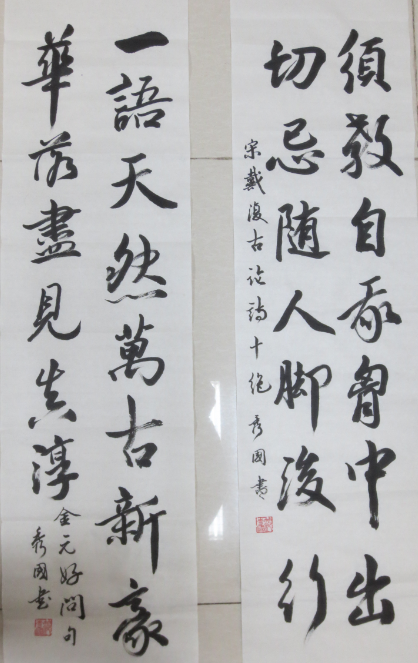 須教自我胷中出
切忌随人脚後行
宋戴復古论诗十绝 秀國書
一語天然萬古新豪
華落盡見真淳
金元好問句
秀國书